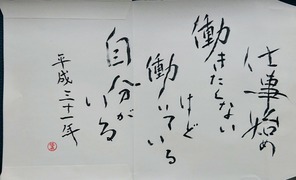 仕事始め
働きたくない
けど
働いている
自分が
いる
平成三十一年